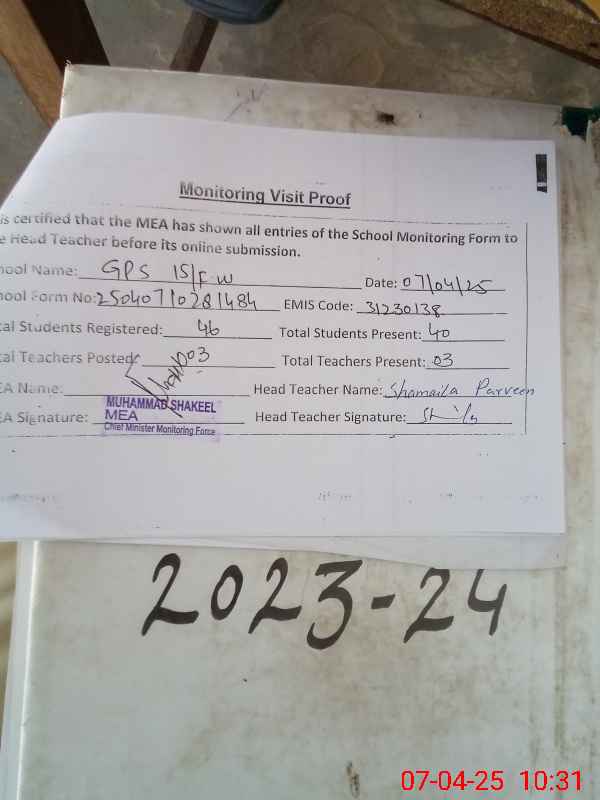 Monitoring Visit Proof
is certified that the MEA has shown all entries of the School Monitoring Form to
e Head Teacher before its online submission.
hool Name: GPS 15/FW Date: 07/04/25
hool Form No: 25040710281484 EMIS Code: 31230138
tal Students Registered: 46 Total Students Present: 40
tal Teachers Posted: 03 Total Teachers Present: 03
EA Name: Head Teacher Name: Shamaila Parveen
MUHAMMAD SHAKEEL
EA Signature: MEA Head Teacher Signature:
Chief Minister Monitoring Force
2023-24
07-04-25 10:31